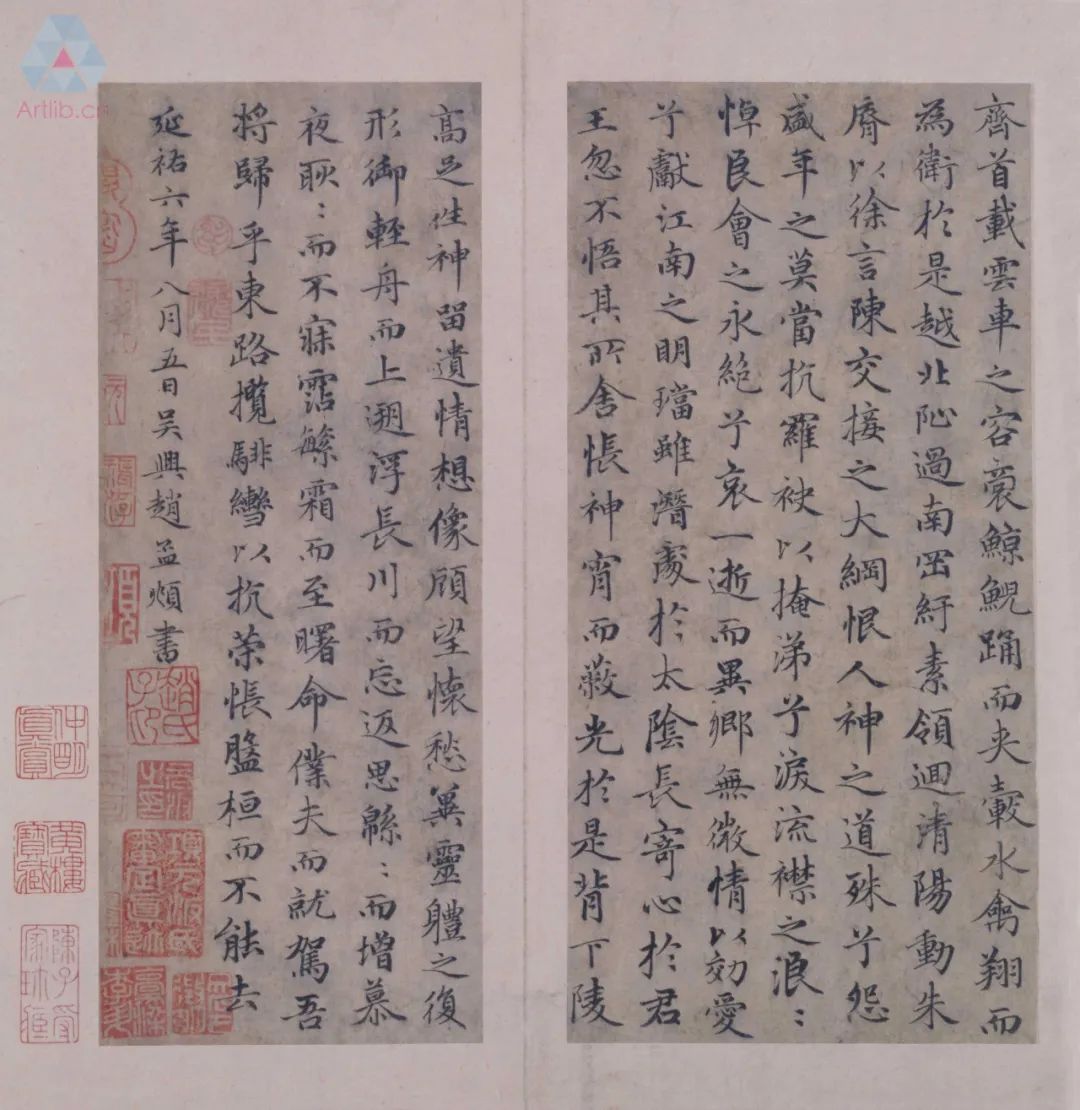 齊首載雲車之容裔鯨鯢踊而夾轂水禽翔而
為衛於是越北沚過南岡紆素領迴清陽動朱
脣以徐言陳交接之大綱恨人神之道殊兮怨
盛年之莫當抗羅袂以掩涕兮淚流襟之浪〻
悼良會之永絕兮哀一逝而異鄉無微情以効愛
兮獻江南之明璫雖潛處於太陰長寄心於君
王忽不悟其所舍悵神宵而蔽光於是背下陵
高足往神留遺情想像顧望懷愁冀靈體之復
形御輕舟而上遡浮長川而忘返思緜〻而增慕
夜耿〻而不寐霑繁霜而至曙命僕夫而就駕吾
將歸乎東路攬騑轡以抗策悵盤桓而不能去
延祐六年八月五日吳興趙孟頫書
趙氏子昂
項元汴氏審定真跡
仲明真賞
黃樓寶藏
陳子受家珍藏
Artlib.cn